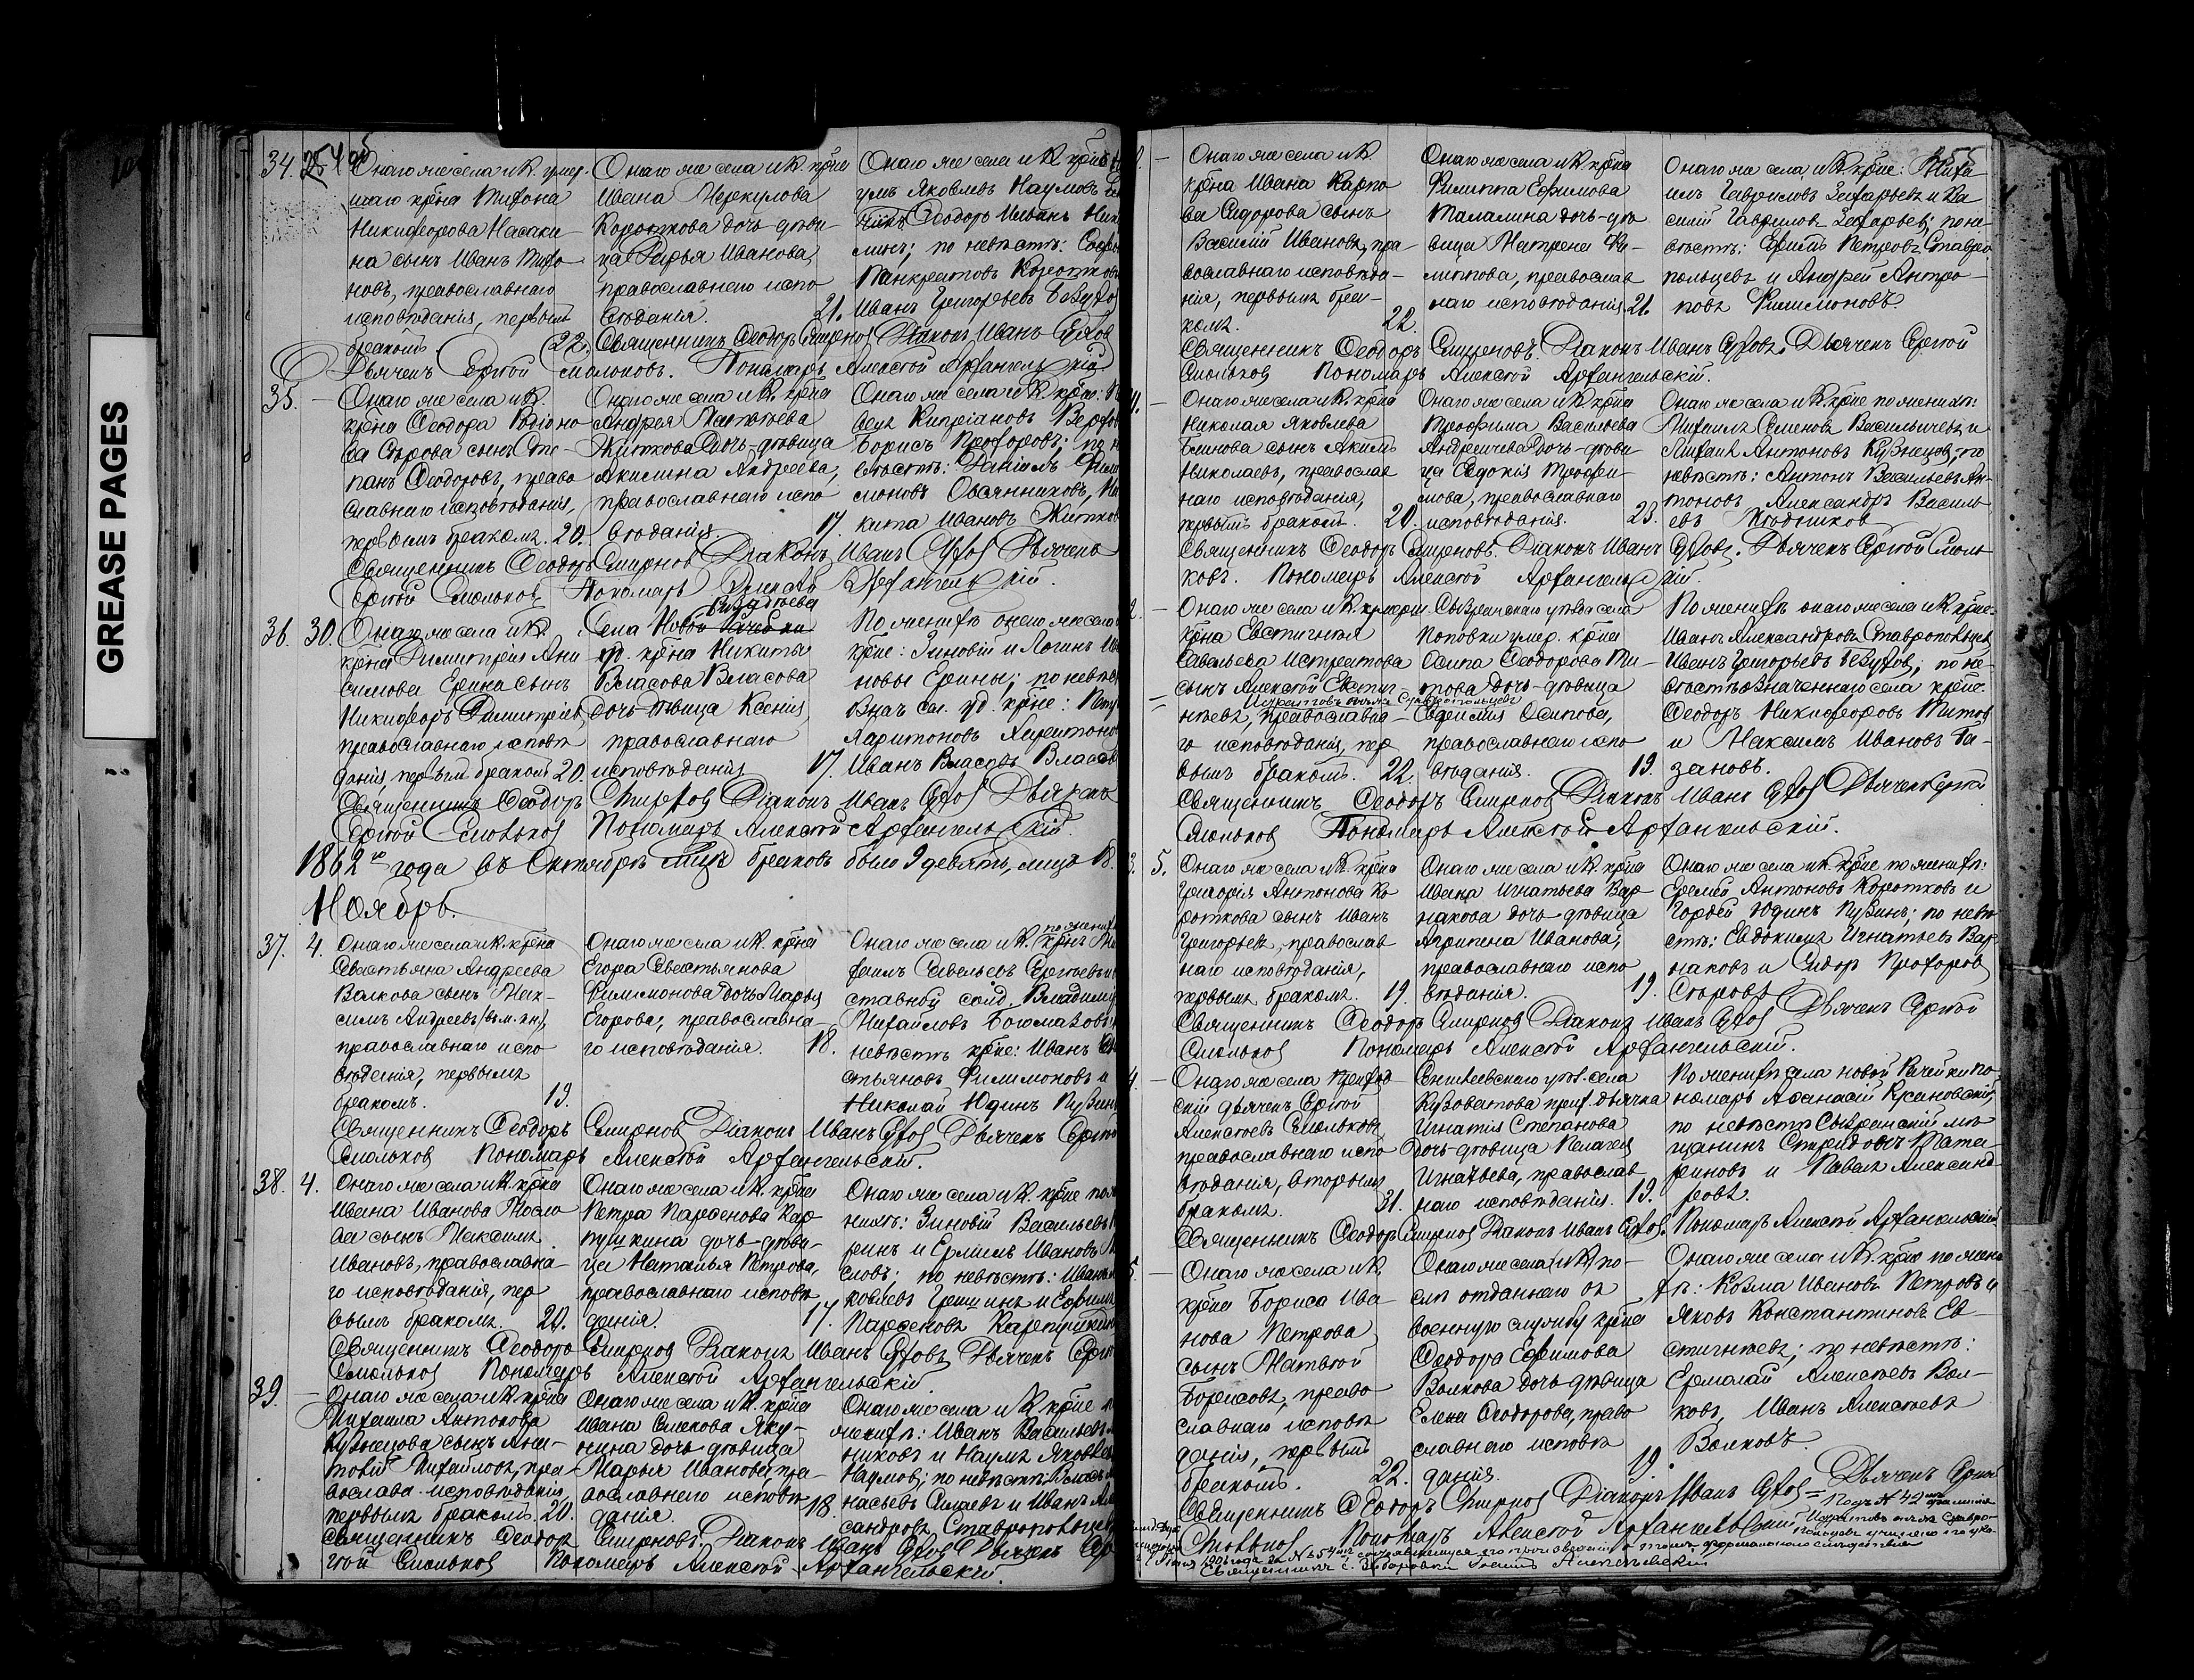 GREASE PAGES
34. 25
Онаго же села и К. умер-
шаго кр̃на Тифона
Никифорова
на сынъ Иванъ Тифо
новъ, православнаго
исповѣданія, первымъ
бракомъ. 22.
Онаго же села и К. кр̃на
Ивана Меркулова
Короткова дочь дѣви-
ца Дарья Иванова,
православнаго испо
вѣданія. 21.
Онаго же села и К. кр̃не
умъ Яковлевъ Наумовъ
Ѳеодоръ Ивановъ
минъ; по невѣстѣ:
Панкратовъ Коротковъ
Иванъ Григорьевъ Безух
Священникъ Ѳеодоръ Смирнов Діаконъ Иванъ
Дьячекъ Сергѣй Смольковъ. Пономарь Алексѣй Архангельскій
35. —
Онаго же села и К.
кр̃на Ѳеодора Родіоно
ва сынъ Сте-
панъ Ѳеодоровъ, право
славнаго исповѣданія,
первымъ бракомъ. 20.
Онаго же села и К. кр̃на
Андрея Матвѣева
Житкова дочь дѣвица
Акилина Андреева,
православнаго испо
вѣданія 17.
Онаго же села и К. кр̃не:
Кипріановъ
Борисъ Прохоровъ; по н
вѣстѣ: Даніилъ Фили
моновъ Овсянниковъ, Ни
кита Ивановъ Житков
Священникъ Ѳеодоръ Смирнов Діаконъ Иванъ Дьячекъ
Сергѣй Смольков Пономарь Алексѣй Архангельскій.
36. 30.
Онаго же села и К.
кр̃на Димитрія Ани
симова Ерина сынъ
Никифоръ Димитріев,
православнаго исповѣ
данія, первымъ бракомъ 20.
Села Новой Рачейки
уд. кр̃на Никиты
Власова Власова
дочь дѣвица Ксенія
православнаго
исповѣданія 17.
По женихѣ онаго же села
кр̃не: Зиновій и Логинъ
новы Ерины; по невѣ
знач. сел. уд. кр̃не: Пет
Харитоновъ Харитоно
Иванъ Власовъ Власов
Священникъ Ѳеодоръ Смирнов Діаконъ Иванъ Дьячекъ
Сергѣй Смольков Пономарь Алексѣй Архангельскій.
1862го года въ Октябрѣ мцѣ браковъ было 9 девять, лицъ 18.
Ноябрь.
37. 4.
Онаго же села и К. кр̃на
Севастьяна Андреева
Волкова сынъ Мак-
симъ Андреевъ
православнаго испо
вѣданія, первымъ
бракомъ. 19.
Онаго же села и К. кр̃на
Егора Севастьянова
Филимонова дочь Марья
Егорова, православна-
го исповѣданія. 18.
Онаго же села и К. кр̃нъ Ми
хаилъ Савельевъ Сергѣевъ
ставной солд. Владимі
Михайловъ Богомазовъ
невѣстѣ кр̃не: Иванъ
стьяновъ Филимоновъ и
Николай Юдинъ
Священникъ Ѳеодоръ Смирнов Діаконъ Иванъ Дьячекъ Серг
Смольков Пономарь Алексѣй Архангельскій.
38. 4.
Онаго же села и К. кр̃на
Ивана Иванова Масло
ва сынъ Максимъ
Ивановъ, православна-
го исповѣданія, пер
вымъ бракомъ. 20.
Онаго же села и К. кр̃на
Петра Парѳенова Кар
пушкина дочь дѣви-
ца Наталья Петрова,
православнаго исповѣ
данія. 17.
Онаго же села и К. кр̃не по же
нихѣ: Зиновій Васильевъ
ринъ и Ермилъ Ивановъ М
словъ; по невѣстѣ: Иванъ
ковлевъ Гришинъ и Ефимъ
Парѳеновъ Карпушкин
Священникъ Ѳеодоръ Смирнов Діаконъ Иванъ Дьячекъ Серг
Смольков Пономарь Алексѣй Архангельскій.
39. —
Онаго же села и К. кр̃на
Михаила Антонова
Кузнецова сынъ
Михайловъ, пра-
вослав. исповѣданія,
первымъ бракомъ. 20.
Онаго же села и К. кр̃на
Ивана Семенова Яку-
нина дочь дѣвица
Марья Иванова пра-
вославнаго исповѣ
данія. 18.
Онаго же села и К. кр̃не
женихѣ: Иванъ Васильевъ
никовъ и Наумъ Яковлев
Наумов; по невѣстѣ:
насьевъ Силаевъ и Иванъ Алек
сандровъ Ставропольцев
Священникъ Ѳеодоръ Смирновъ. Діаконъ Иванъ Дьячекъ Сер
гѣй Смольков Пономарь Алексѣй Архангельскій.
Онаго же села и К.
кр̃на Ивана Карпо
ва Сидорова сынъ
Василій Ивановъ, пра-
вославнаго исповѣда-
нія, первымъ бра-
комъ. 22.
Онаго же села и К. кр̃на
Филиппа Ефимова
Малашина дочь-дѣ
вица Матрена Фи-
липпова, православ
наго исповѣданія. 21.
Онаго же села и К. кр̃не: Миха
илъ Гавриловъ Захарьевъ и Ва
силій Гавриловъ Захарьев; по не
вѣстѣ: Ефимъ Петровъ Ставро
польцевъ и Андрей Антро-
повъ Филимоновъ.
Священникъ Ѳеодоръ Смирновъ. Діаконъ Иванъ Дьячекъ Сергѣй
Смольков Пономарь Алексѣй Архангельскій.
Онаго же села и К. кр̃на
Николая Яковлева
Блинова сынъ Акимъ
Николаевъ, православ
наго исповѣданія,
первымъ бракомъ. 20.
Онаго же села и К. кр̃на
Трофима Васильева
Андреичева дочь-дѣви-
ца Евдокія Трофи-
мова, православнаго
исповѣданія. 23.
Онаго же села и К. кр̃не по женихѣ:
Михаилъ Семеновъ Васильичевъ и
Михаилъ Антоновъ Кузнецов; по
невѣстѣ: Антонъ Васильевъ Ан-
тоновъ Александръ Василь
евъ
Священникъ Ѳеодоръ Смирновъ. Діаконъ Иванъ Дьячекъ Сергѣй Смоль
ковъ. Пономарь Алексѣй Архангельскій.
Онаго же села и К.
кр̃на Евстигнѣя
Савельева Истратова
сынъ Алексѣй Евстиг-
нѣевъ, православна-
го исповѣданія, пер
вымъ бракомъ. 22.
Сызранскаго уѣзда села
Поповки умер. кр̃на
Осипа Ѳеодорова Ти-
това дочь-дѣвица
Евфимія Осипова,
православнаго испо
вѣданія. 19.
По женихѣ онаго же села и К. кр̃не:
Иванъ Александровъ Ставропольцев
Иванъ Григорьевъ Безухов; по не-
вѣстѣ означеннаго села кр̃не:
Ѳеодоръ Никифоровъ Титов
и Максимъ Ивановъ Га-
зановъ.
Священникъ Ѳеодоръ Смирнов Діаконъ Иванъ Дьячекъ Сергѣй
Смольков Пономарь Алексѣй Архангельскій.
5.
Онаго же села и К. кр̃на
Григорія Антонова Ко
роткова сынъ Иванъ
Григорьев, православ
наго исповѣданія,
первымъ бракомъ. 19.
Онаго же села и К. кр̃на
Ивана Игнатьева Вар
накова дочь-дѣвица
Агрипена Иванова,
православнаго испо
вѣданія. 19.
Онаго же села и К. кр̃не по женихѣ:
Еремѣй Антоновъ Коротковъ и
Гордѣй Юдинъ; по невѣ
стѣ: Евдокимъ Игнатьевъ Вар
наковъ и Сидоръ Прохоров
Священникъ Ѳеодоръ Смирнов Діаконъ Иванъ Дьячекъ Сергѣй
Смольков Пономарь Алексѣй Архангельскій.
Онаго же села приход
скій дьячекъ Сергѣй
Алексѣевъ Смольков
православнаго испо
вѣданія, вторымъ
бракомъ. 31.
Сенгилеевскаго уѣз. села
Кузоватова прих. дьячка
Игнатія Степанова
дочь-дѣвица Пелагея
Игнатьева, православ
наго исповѣданія. 19.
По женихѣ села новой Рачейки по-
номарь Аѳанасій
по невѣстѣ Сызранскій мѣ
щанинъ Спиридонъ
риновъ и Павелъ Александ
ровъ.
Священникъ Ѳеодоръ Смирнов Діаконъ Иванъ Пономарь Алексѣй Архангельскій
Онаго же села и К.
кр̃на Бориса Ива
нова Петрова
сынъ Матвѣй
Борисовъ, право-
славнаго исповѣ
данія, первымъ
бракомъ. 22.
Онаго же села и К. по-
слѣ отданнаго въ
военную службу кр̃на
Ѳеодора Ефимова
Волкова дочь-дѣвица
Елена Ѳеодорова, право
славнаго исповѣ
данія. 19.
Онаго же села и К. кр̃не по жени
хѣ: Козма Ивановъ Петровъ и
Яковъ Константиновъ Ев
стигнѣевъ; по невѣстѣ:
Ермолай Алексѣевъ Вол-
ковъ, Иванъ Алексѣевъ
Волковъ.
Священникъ Ѳеодоръ Смирнов Діаконъ Иванъ Дьячекъ Сергѣй
Смольков Пономарь Алексѣй Архангельскій